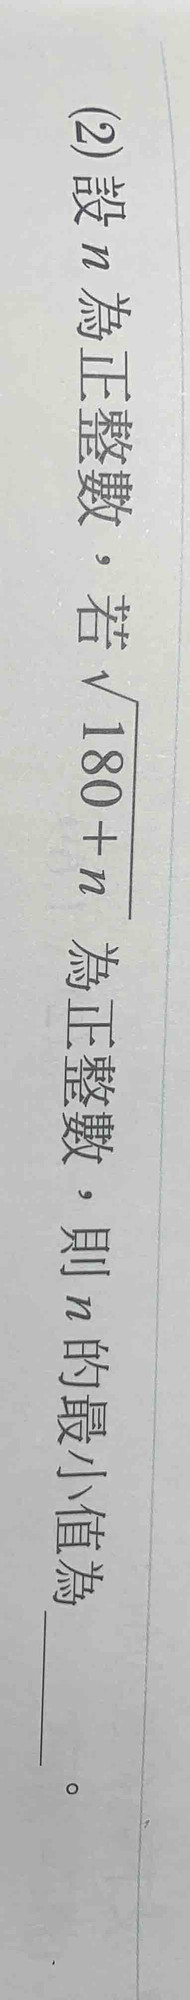 (2) 設 n 為正整數，若 √180+n 為正整數，則 n 的最小值為______。